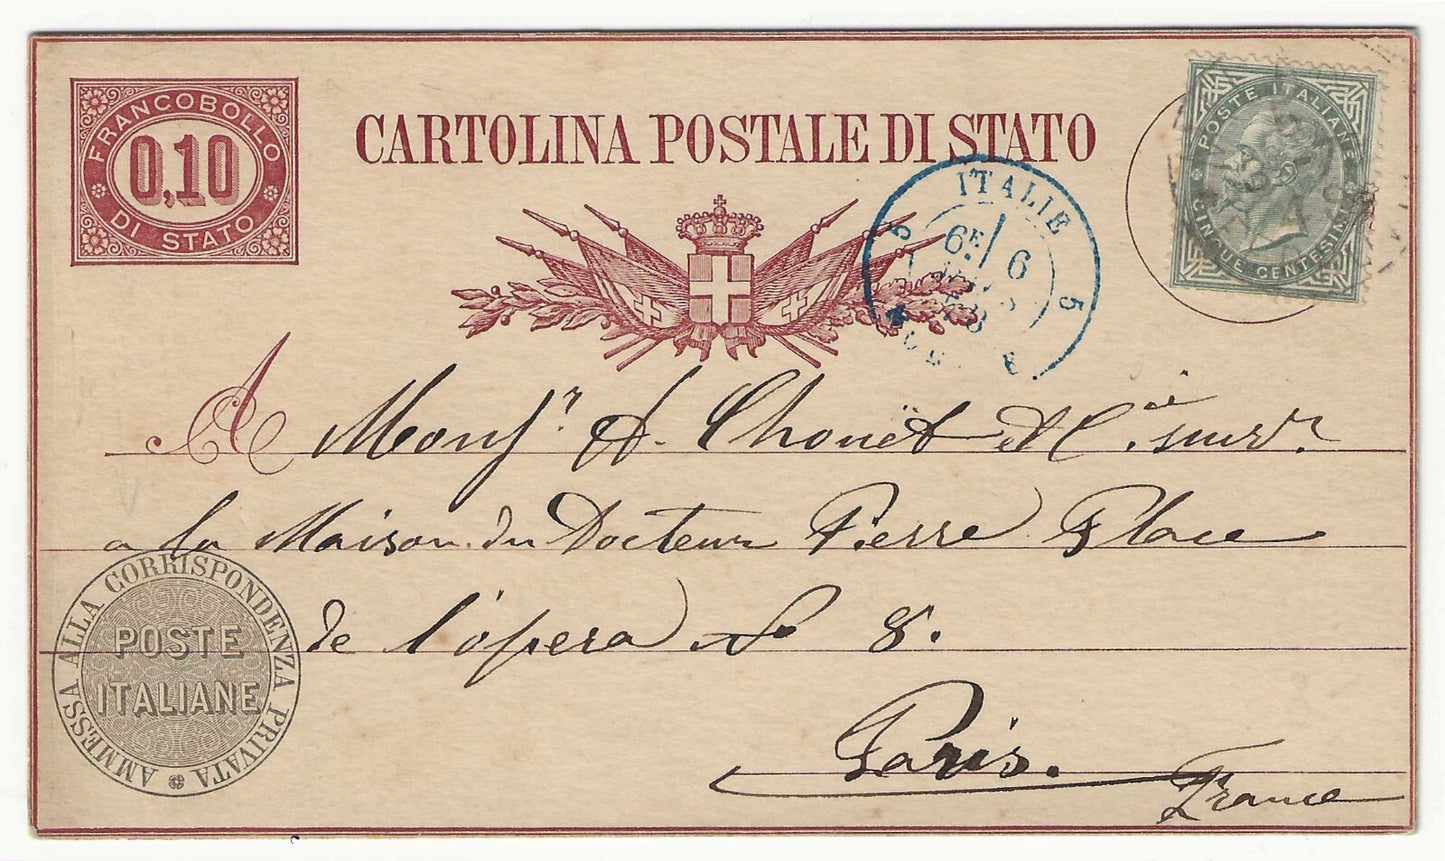 FRANCOBOLLO
0,10
DI STATO
CARTOLINA POSTALE DI STATO
POSTE ITALIANE
CINQUE CENTESIMI
ITALIE
5 5
6E / 6
A Monsr. A. Chouet & Cie. succrs.
a la Maison du Docteur Pierre Place
de l'opera No 8.
Paris.
France
AMMESSA ALLA CORRISPONDENZA PRIVATA
POSTE
ITALIANE